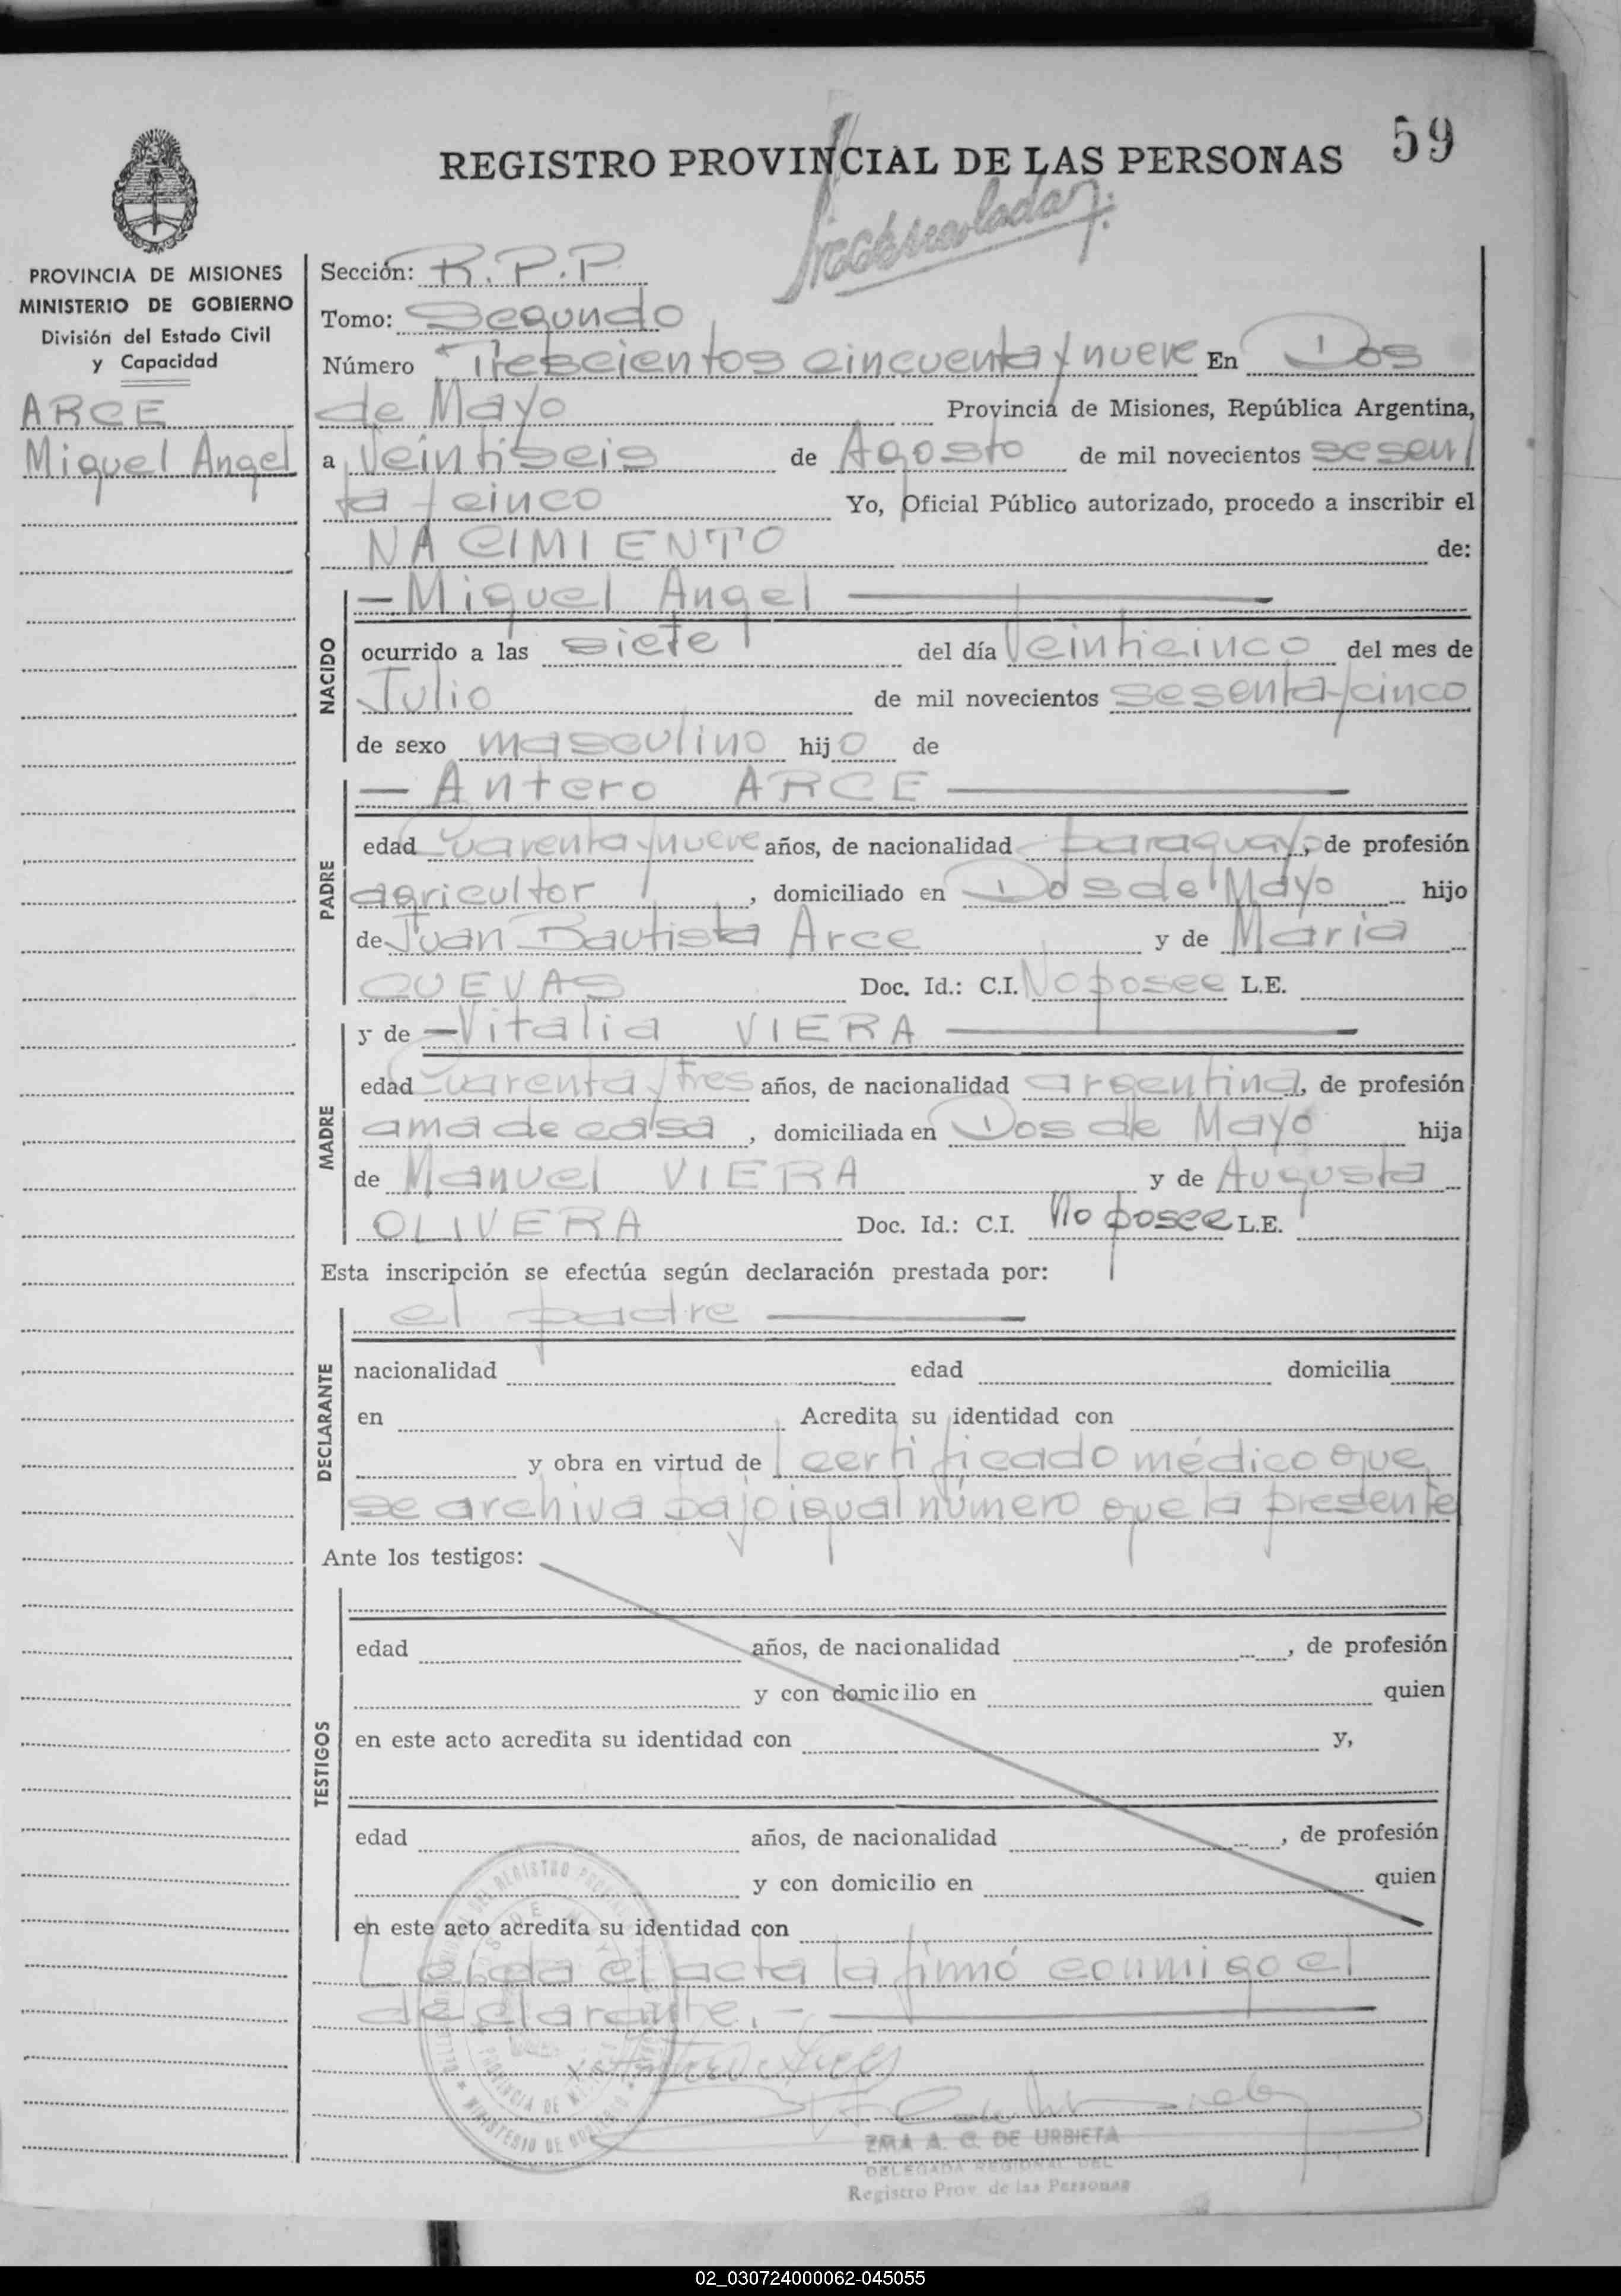 59
REGISTRO PROVINCIAL DE LAS PERSONAS
PROVINCIA DE MISIONES
MINISTERIO DE GOBIERNO
División del Estado Civil
y Capacidad
ARCE
Miguel Angel
Sección: R.P.P.
Tomo: Segundo
Número Trescientos cincuenta y nueve En Dos
de Mayo Provincia de Misiones, República Argentina,
a Veintiseis de Agosto de mil novecientos sesen
ta y cinco Yo, Oficial Público autorizado, procedo a inscribir el
NACIMIENTO de:
NACIDO
— Miguel Angel —
ocurrido a las siete del día Veinticinco del mes de
Julio de mil novecientos sesenta y cinco
de sexo masculino hijo de
PADRE
— Antero ARCE —
edad Cuarenta y nueve años, de nacionalidad paraguayo, de profesión
agricultor, domiciliado en Dos de Mayo hijo
de Juan Bautista Arce y de Maria
CUEVAS Doc. Id.: C.I. No posee L.E.
MADRE
y de — Vitalia VIERA —
edad Cuarenta y tres años, de nacionalidad argentina, de profesión
ama de casa, domiciliada en Dos de Mayo hija
de Manuel VIERA y de Augusta
OLIVERA Doc. Id.: C.I. No posee L.E.
Esta inscripción se efectúa según declaración prestada por:
DECLARANTE
el padre —
nacionalidad edad domicilia
en Acredita su identidad con
y obra en virtud de certificado médico que
se archiva bajo igual número que la presente
Ante los testigos:
TESTIGOS
edad años, de nacionalidad , de profesión
y con domicilio en quien
en este acto acredita su identidad con y,
edad años, de nacionalidad , de profesión
y con domicilio en quien
en este acto acredita su identidad con
Leída el acta la firmó conmigo el
declarante. —
ZMA A. G. DE URBIETA
DELEGADA REGIONAL DEL
Registro Prov. de las Personas
02_030724000062-045055